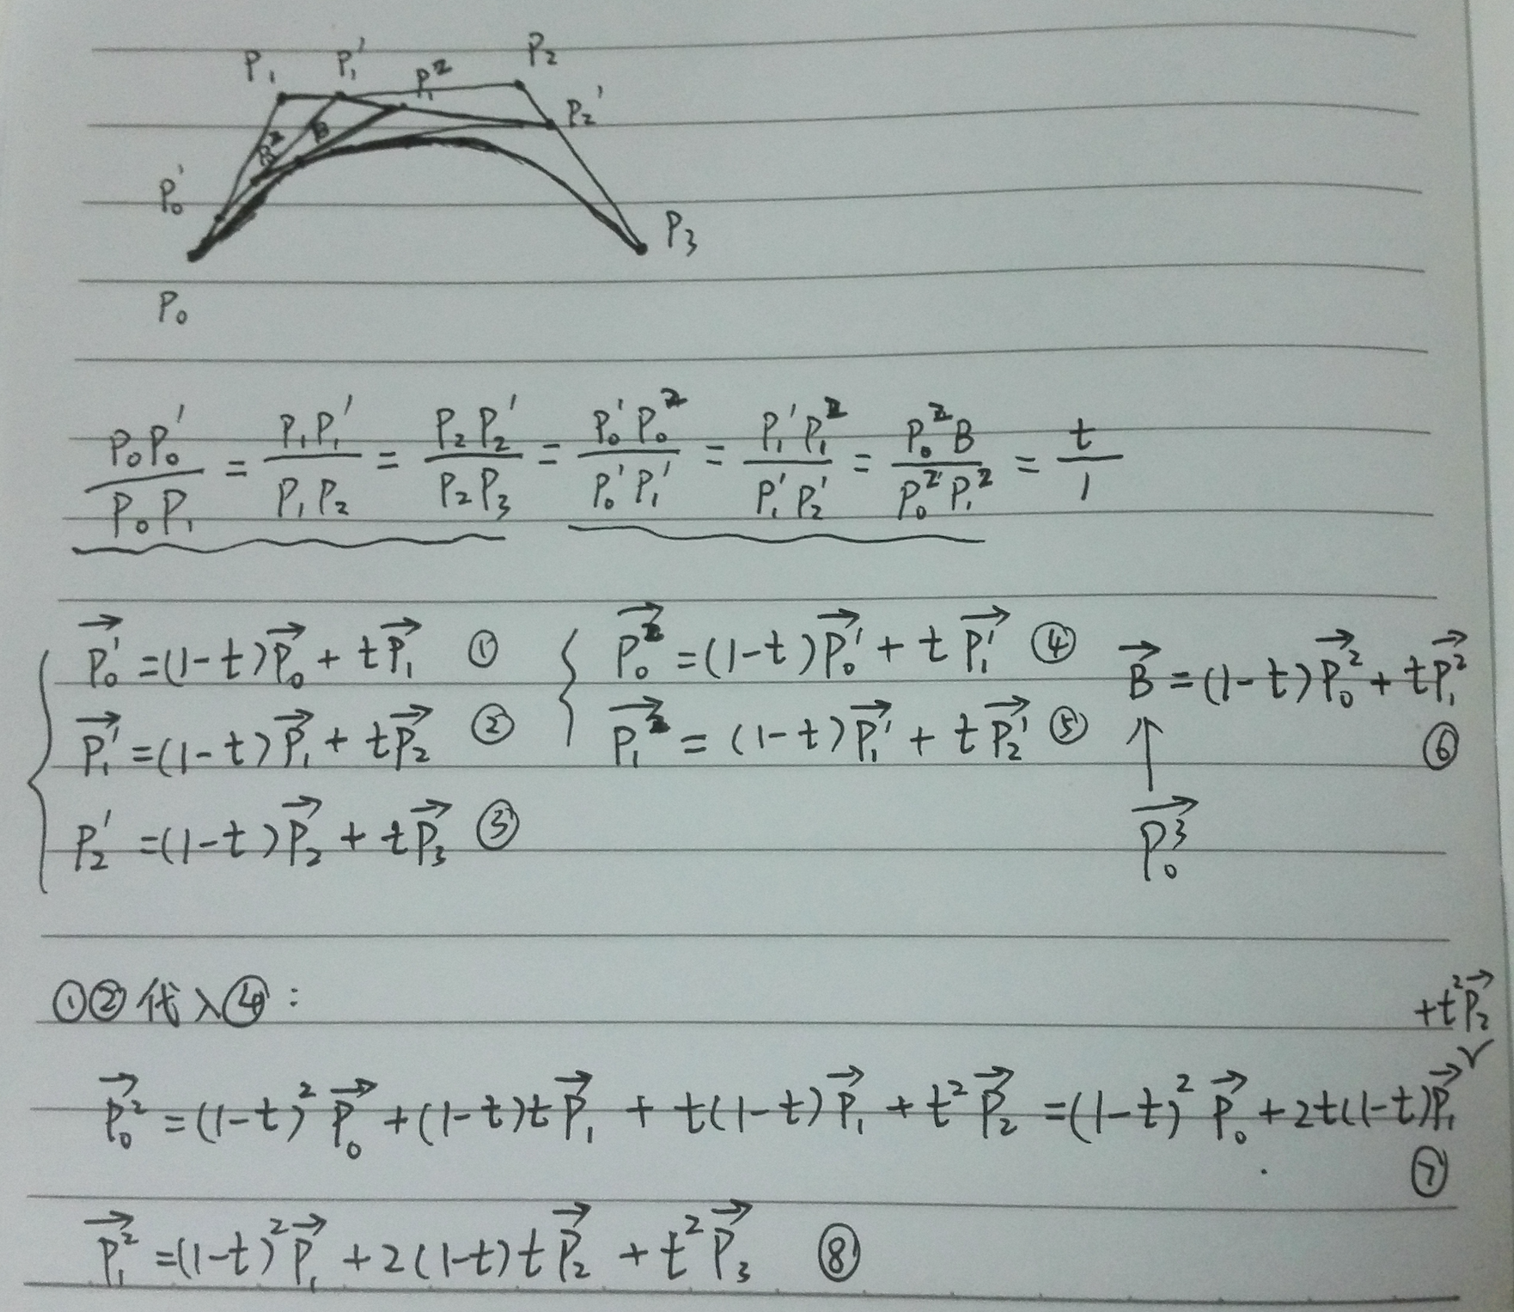 P₁ P₁' P₁² P₂
P₂'
P₀² B
P₀'
P₃
P₀
P₀P₀'/P₀P₁ = P₁P₁'/P₁P₂ = P₂P₂'/P₂P₃ = P₀'P₀²/P₀'P₁' = P₁'P₁²/P₁'P₂' = P₀²B/P₀²P₁² = t/1
P₀'→ = (1-t)P₀→ + tP₁→ ①
P₁'→ = (1-t)P₁→ + tP₂→ ②
P₂' = (1-t)P₂→ + tP₃→ ③
P₀²→ = (1-t)P₀'→ + tP₁'→ ④
P₁²→ = (1-t)P₁'→ + tP₂'→ ⑤
B→ = (1-t)P₀²→ + tP₁²→
⑥
↑
P₀³→
①②代入④:
P₀²→ = (1-t)²P₀→ + (1-t)tP₁→ + t(1-t)P₁→ + t²P₂→ = (1-t)²P₀→ + 2t(1-t)P₁→ + t²P₂→
⑦
P₁²→ = (1-t)²P₁→ + 2(1-t)tP₂→ + t²P₃→ ⑧